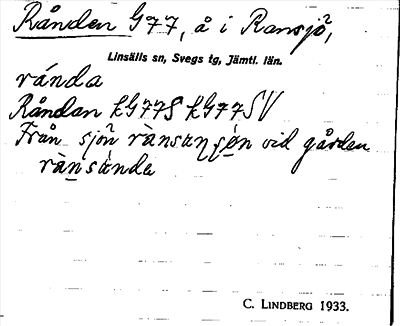 Rånden G77, å i Ransjö,
Linsälls sn, Svegs tg, Jämtl. län.
ránda
Råndan kG77S kG77SV
Från sjön rànsaŋʂøn vid gården
rànsànda
C. LINDBERG 1933.